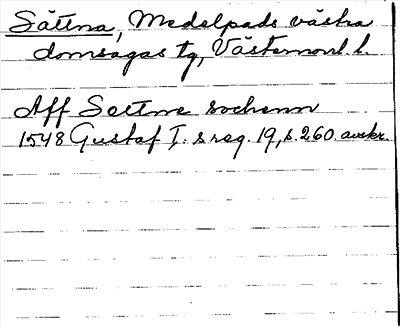 Sättna, Medelpads västra
domsagas tg, Västernorrl. l.
Aff Settne sochenn
1548 Gustaf I:s reg. 19, s. 260 avskr.